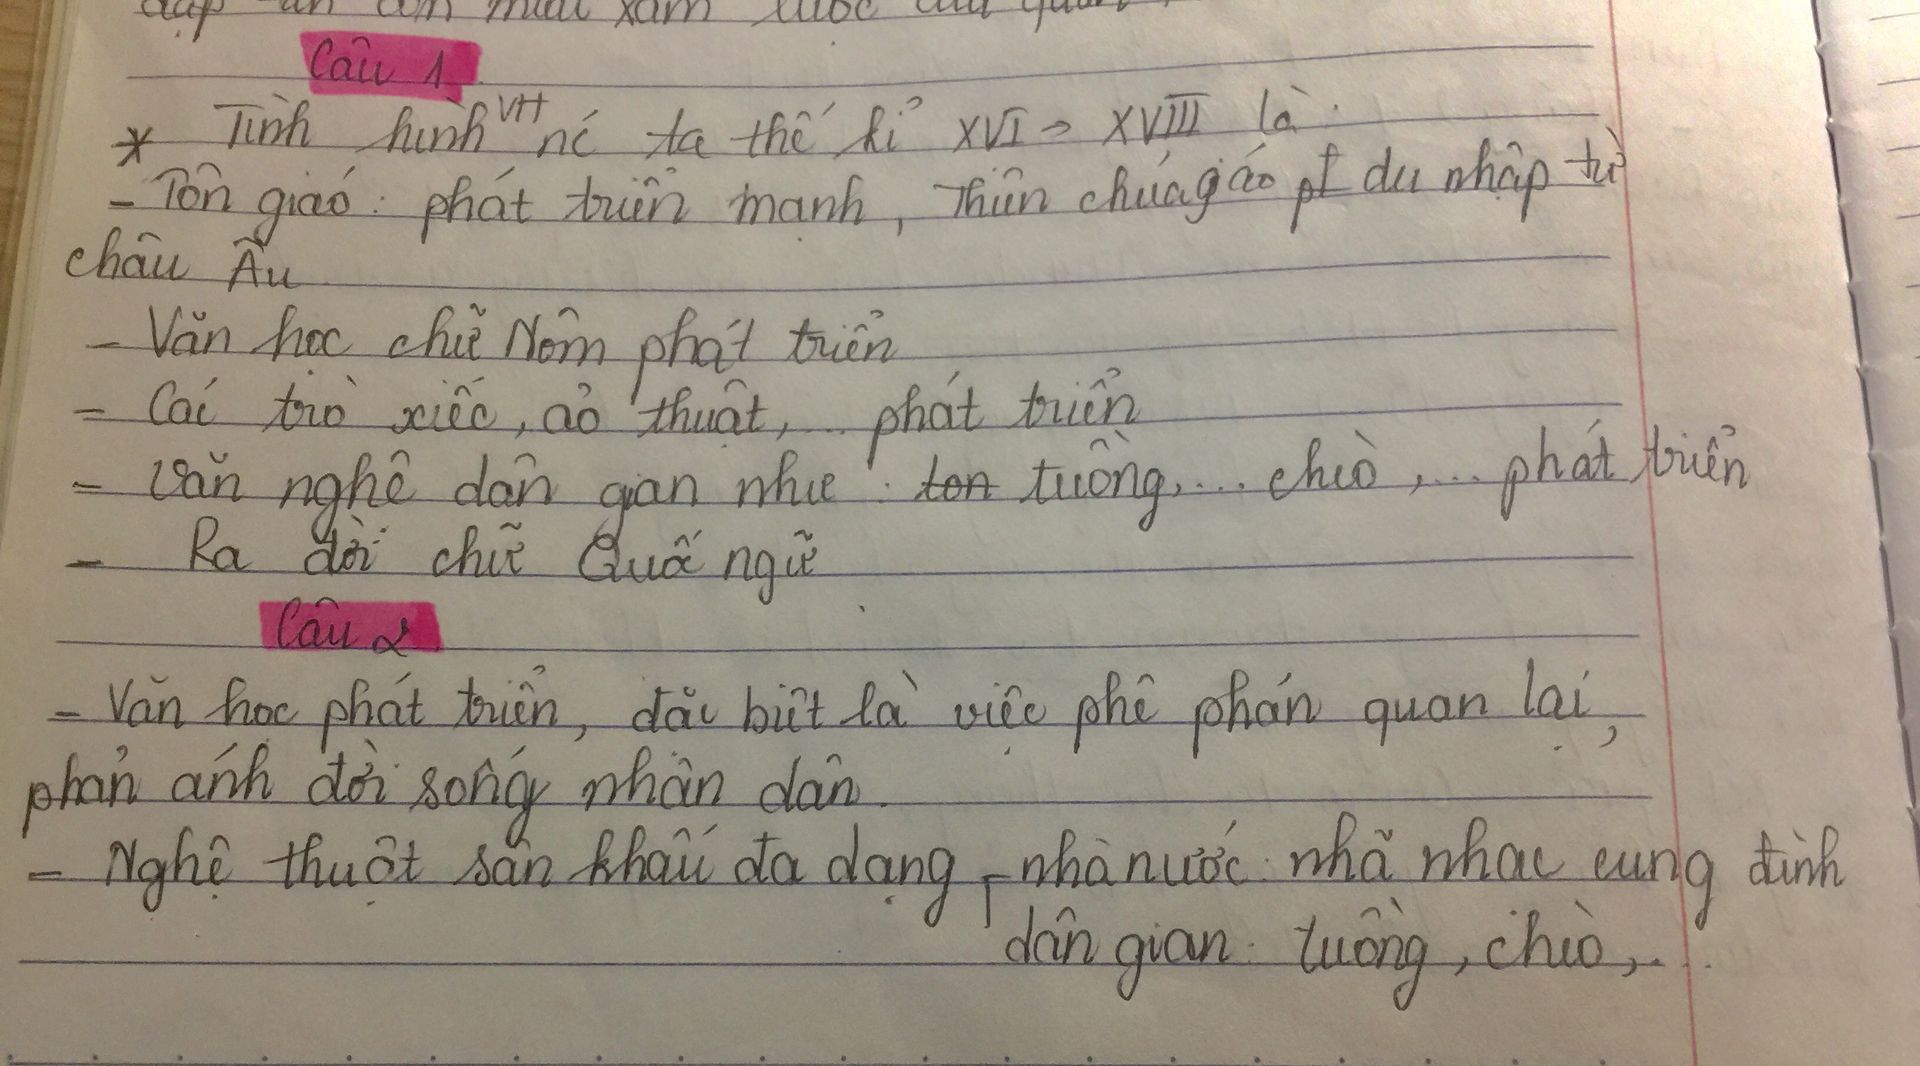 đập tan âm mưu xâm lược của quân
Câu 1
* Tình hình VH nc ta thế kỉ XVI → XVIII là:
- Tôn giáo: phát triển mạnh, Thiên chúa giáo pt du nhập từ
châu Âu
- Văn học chữ Nôm phát triển
- Các trò xiếc, ảo thuật,... phát triển
- Văn nghệ dân gian như: ton tuồng,... chèo,... phát triển
- Ra đời chữ Quốc ngữ
Câu 2
- Văn học phát triển, đặc biệt là việc phê phán quan lại,
phản ánh đời sống nhân dân.
- Nghệ thuật sân khấu đa dạng - nhà nước: nhã nhạc cung đình
dân gian: tuồng, chèo,...